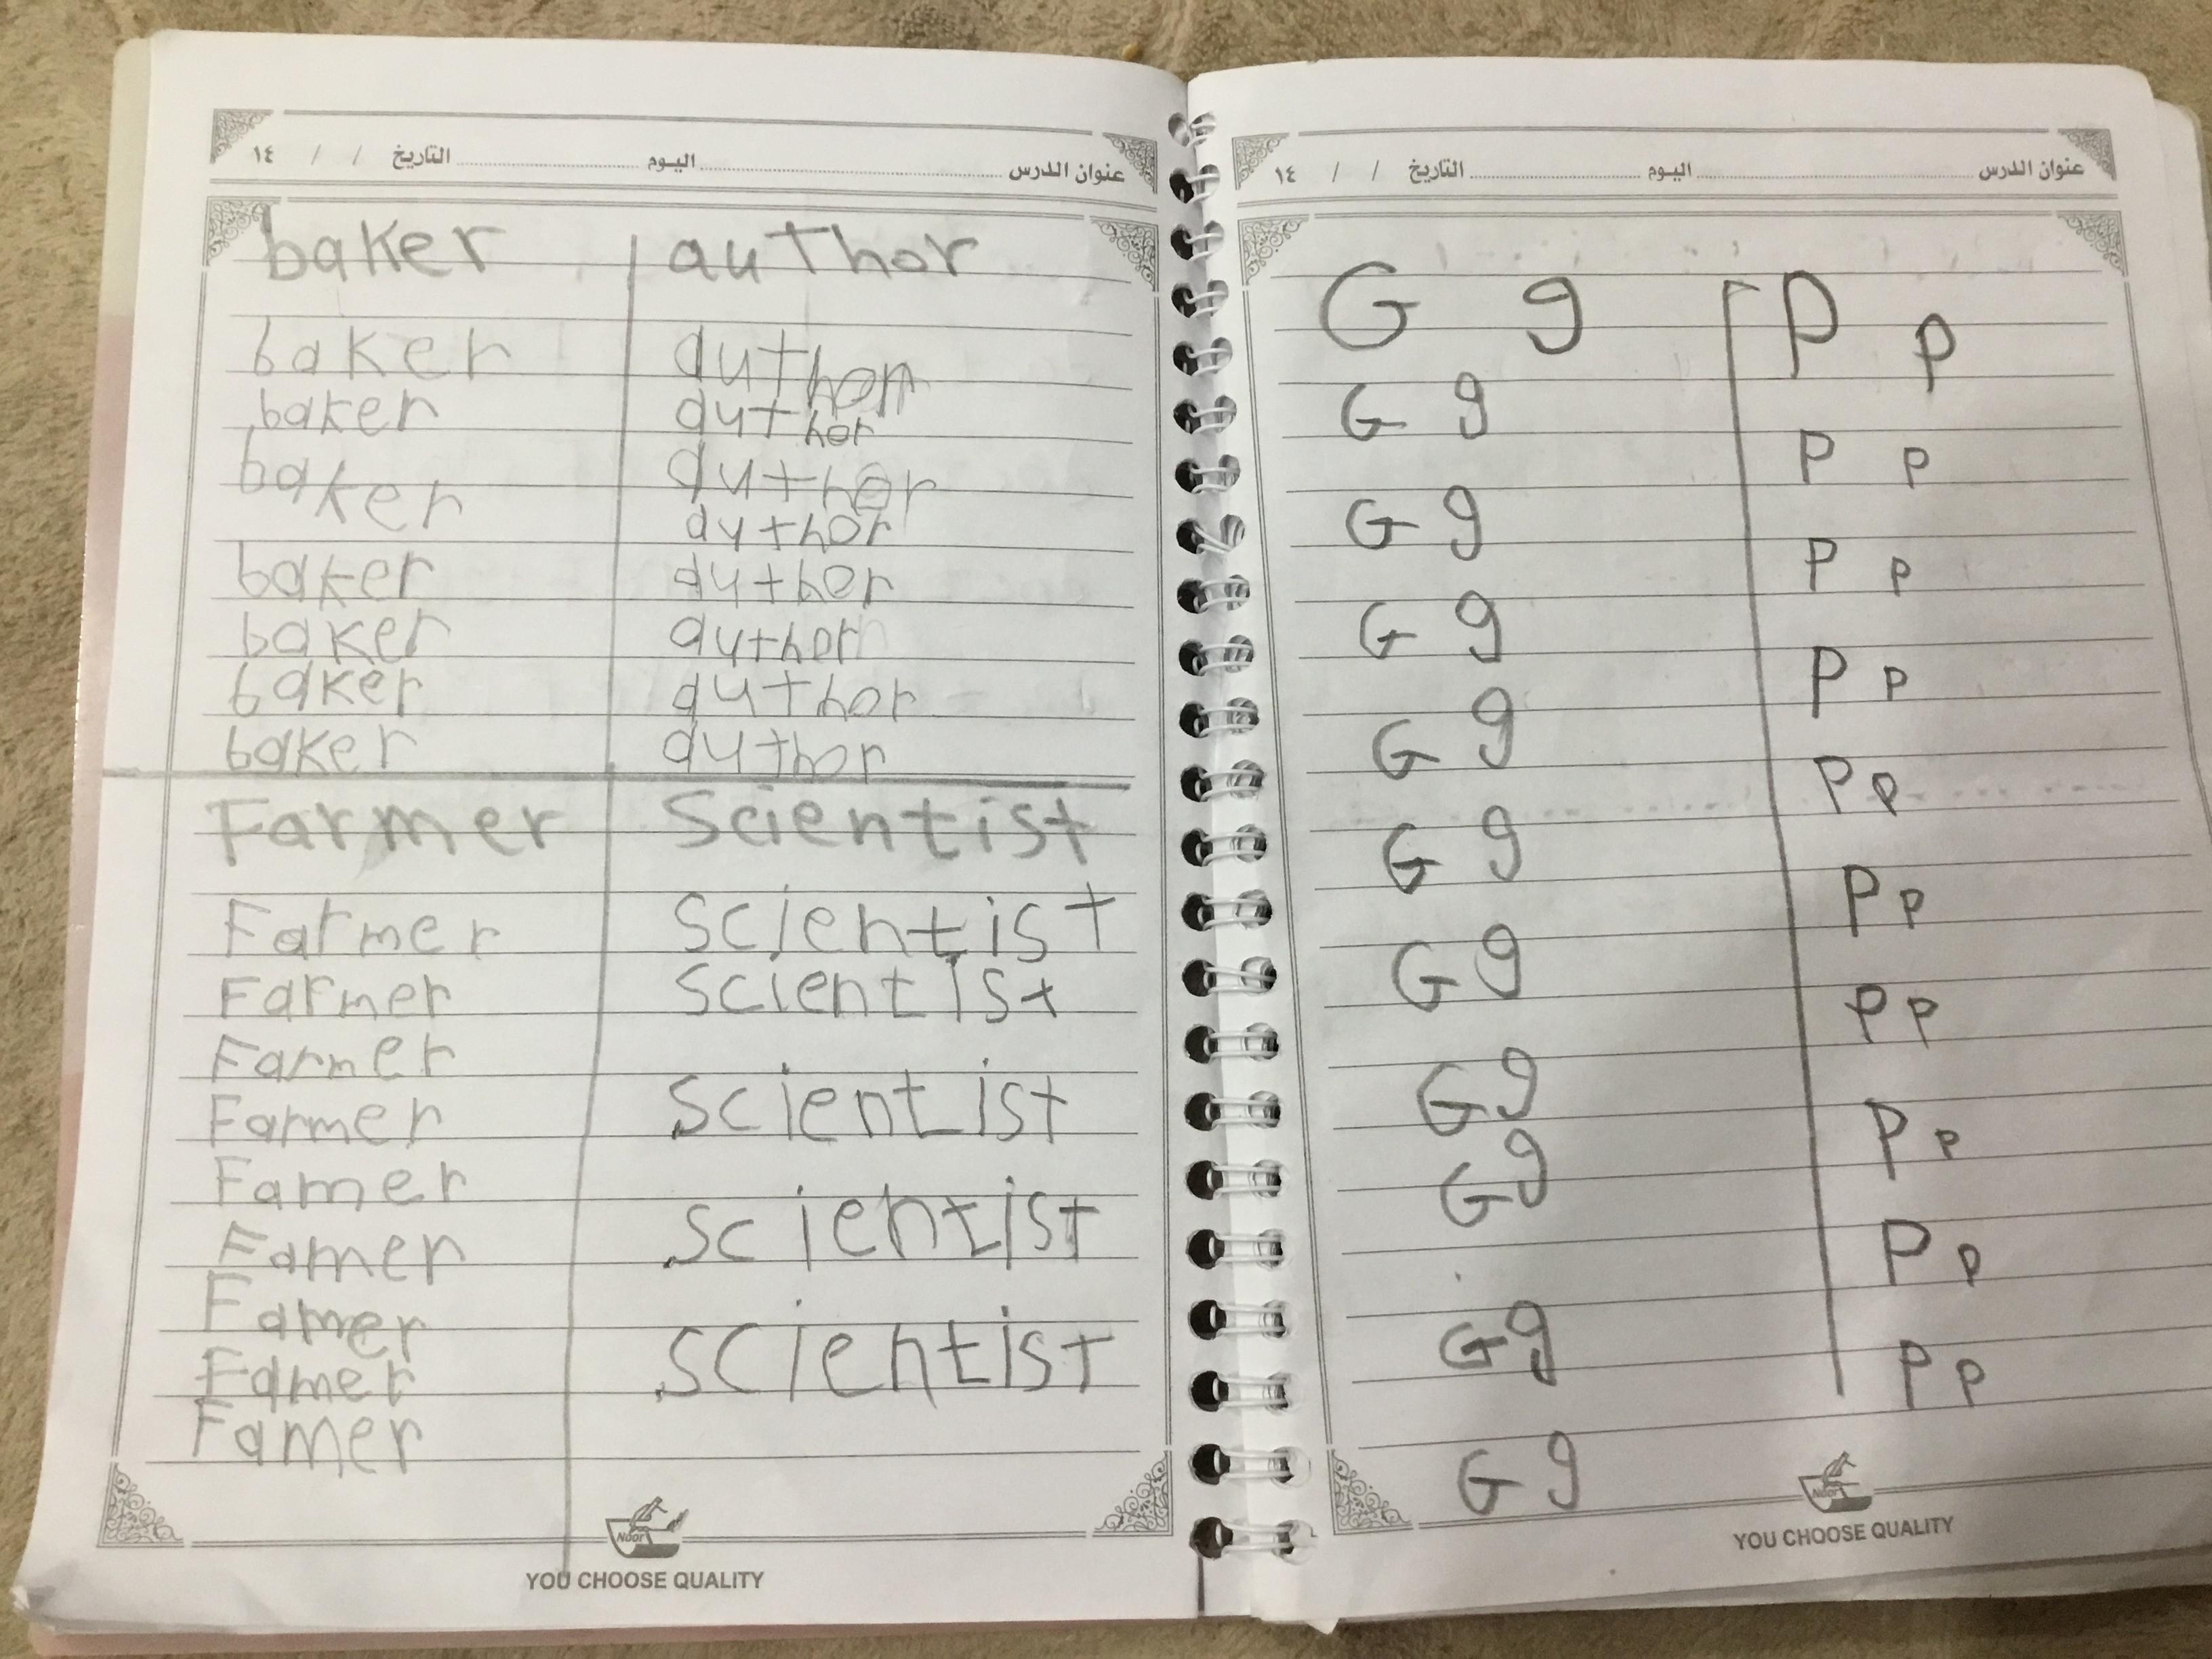 عنوان الدرس اليوم التاريخ / / ١٤
baker author
baker author
baker author
baker author
author
baker author
baker author
baker author
baker author
Farmer Scientist
Farmer scientist
Farmer scientist
Farmer
Farmer scientist
Famer
Famer scientist
Famer
Famer scientist
Famer
Noor
YOU CHOOSE QUALITY
عنوان الدرس اليوم التاريخ / / ١٤
G g P p
G g P p
G g P p
G g P p
G g P p
G g P p
G g P p
G g P p
G g P p
G g P p
G g
Noor
YOU CHOOSE QUALITY